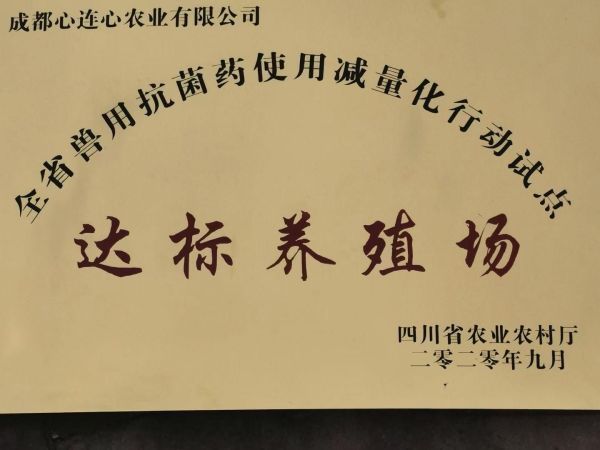 成都心连心农业有限公司
全省兽用抗菌药使用减量化行动试点
达标养殖场
四川省农业农村厅
二零二零年九月